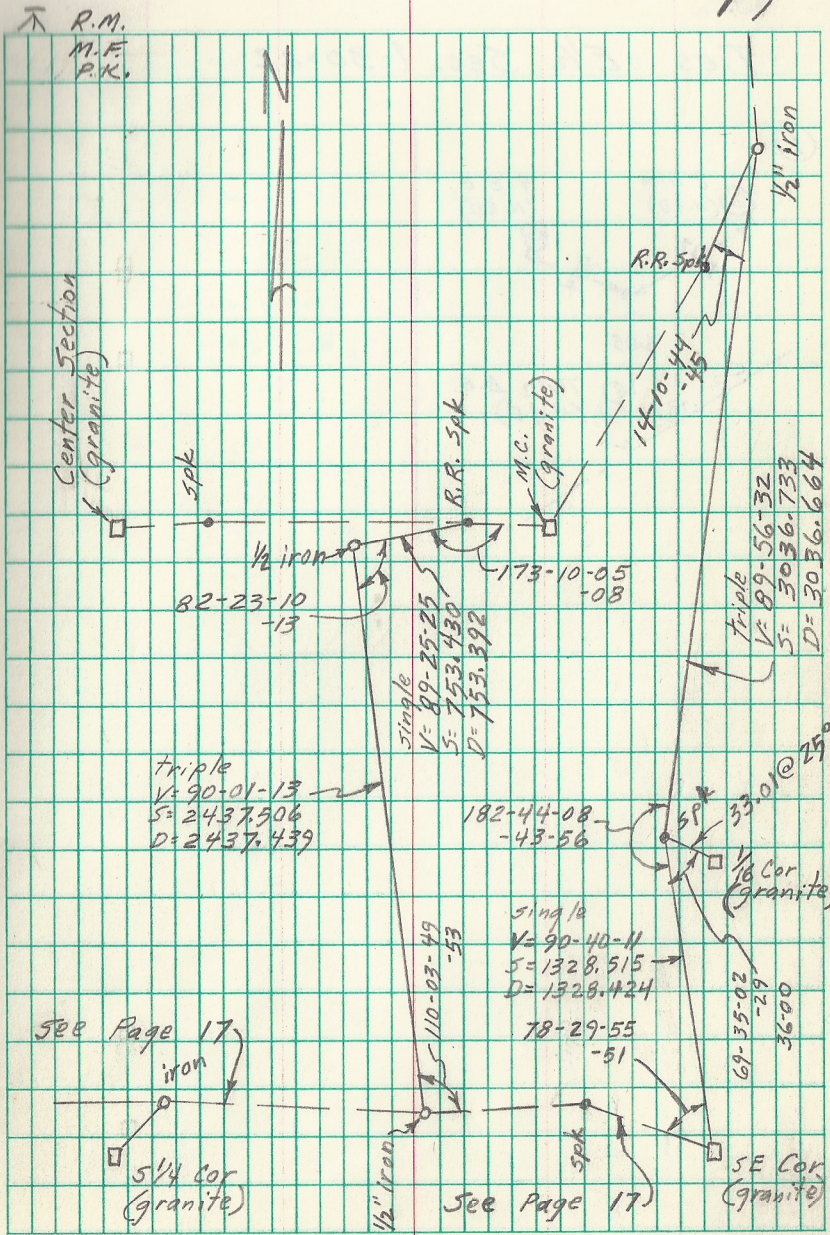 R.M.
M.F.
P.K.
N
1/2" iron
R.R. Spk
14-10-44
-45
Center Section
(granite)
spk
R.R. Spk
M.C.
(granite)
1/2 iron
82-23-10
-13
173-10-05
-08
single
V= 89-25-25
S= 753.430
D= 753.392
triple
V= 89-56-32
S= 3036.733
D= 3036.664
triple
V= 90-01-13
S= 2437.506
D= 2437.439
182-44-08
-43-56
spk
33.01 @ 25°
1/16 Cor
(granite)
single
V= 90-40-11
S= 1328.515
D= 1328.424
110-03-49
-53
78-29-55
-51
69-35-02
-29
36-00
See Page 17
iron
S 1/4 Cor
(granite)
1/2" iron
spk
See Page 17
SE Cor
(granite)